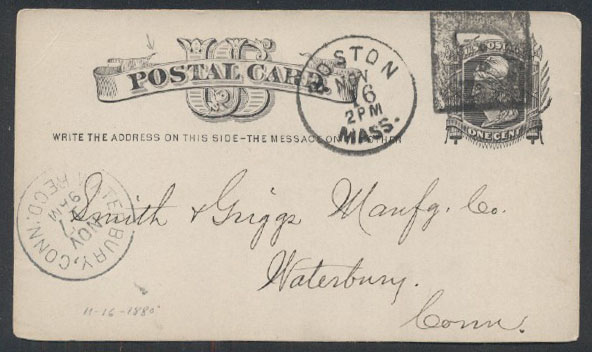 US
POSTAL CARD
WRITE THE ADDRESS ON THIS SIDE-THE MESSAGE ON THE OTHER
BOSTON
NOV
16
2 PM
MASS.
U.S. POSTAGE
ONE CENT
WATERBURY, CONN.
NOV
9 AM
REC'D.
Smith & Griggs Manfg. Co.
Waterbury.
Conn.
11-16-1880